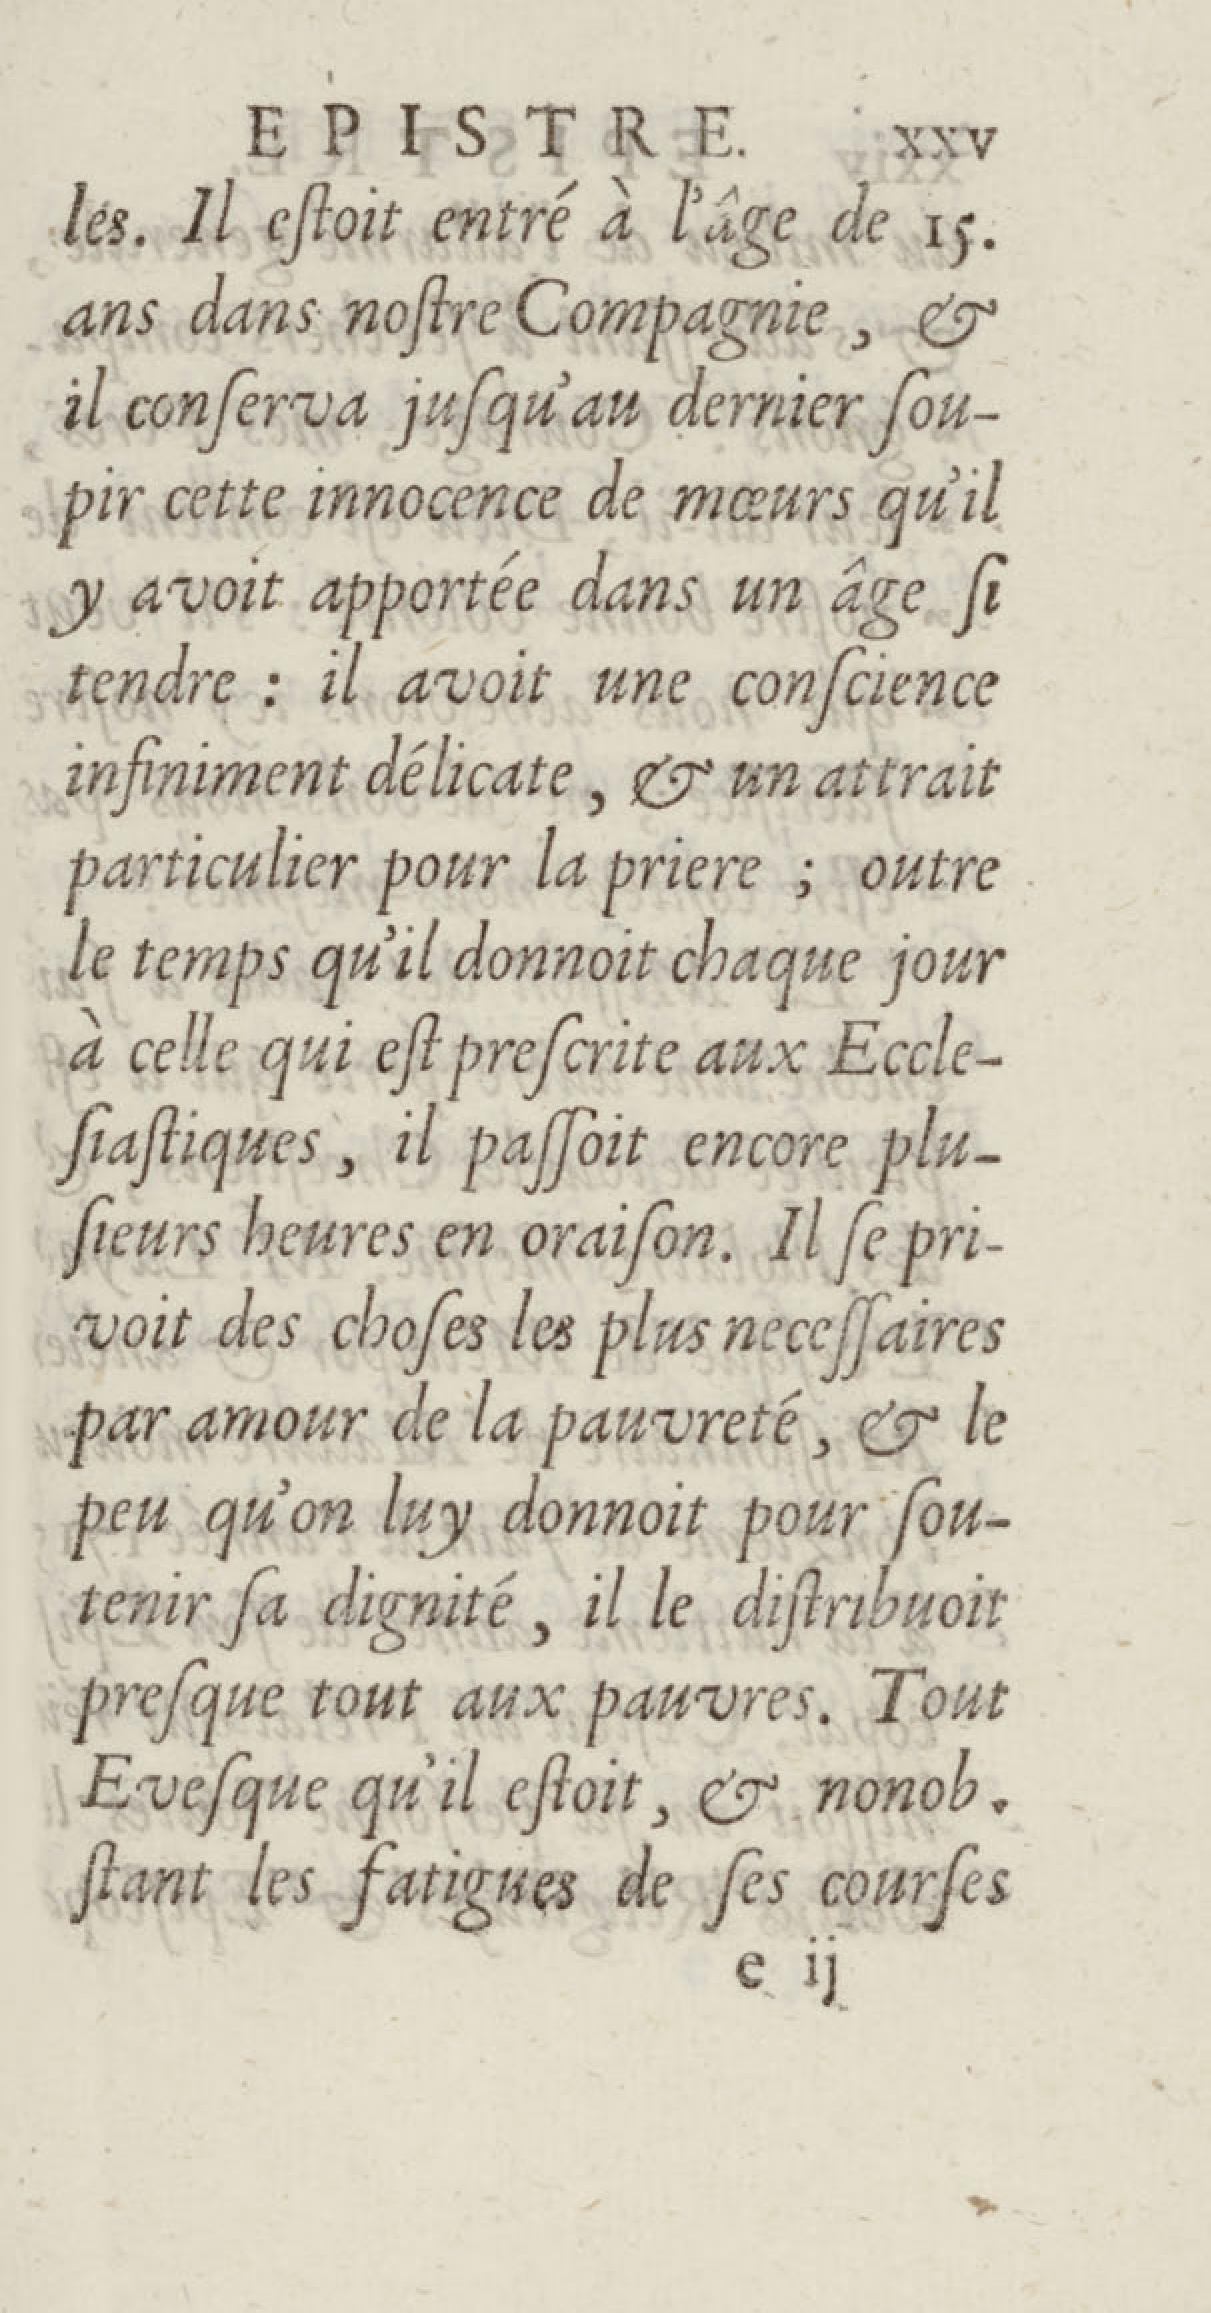 EPISTRE. xxv
les. Il eſtoit entré à l'âge de 15.
ans dans noſtre Compagnie, &
il conſerva juſqu'au dernier ſou-
pir cette innocence de mœurs qu'il
y avoit apportée dans un âge ſi
tendre : il avoit une conſcience
infiniment délicate, & un attrait
particulier pour la priere ; outre
le temps qu'il donnoit chaque jour
à celle qui eſt preſcrite aux Eccle-
ſiaſtiques, il paſſoit encore plu-
ſieurs heures en oraiſon. Il ſe pri-
voit des choſes les plus neceſſaires
par amour de la pauvreté, & le
peu qu'on luy donnoit pour ſou-
tenir ſa dignité, il le diſtribuoit
preſque tout aux pauvres. Tout
Eveſque qu'il eſtoit, & nonob.
ſtant les fatigues de ſes courſes
e ij